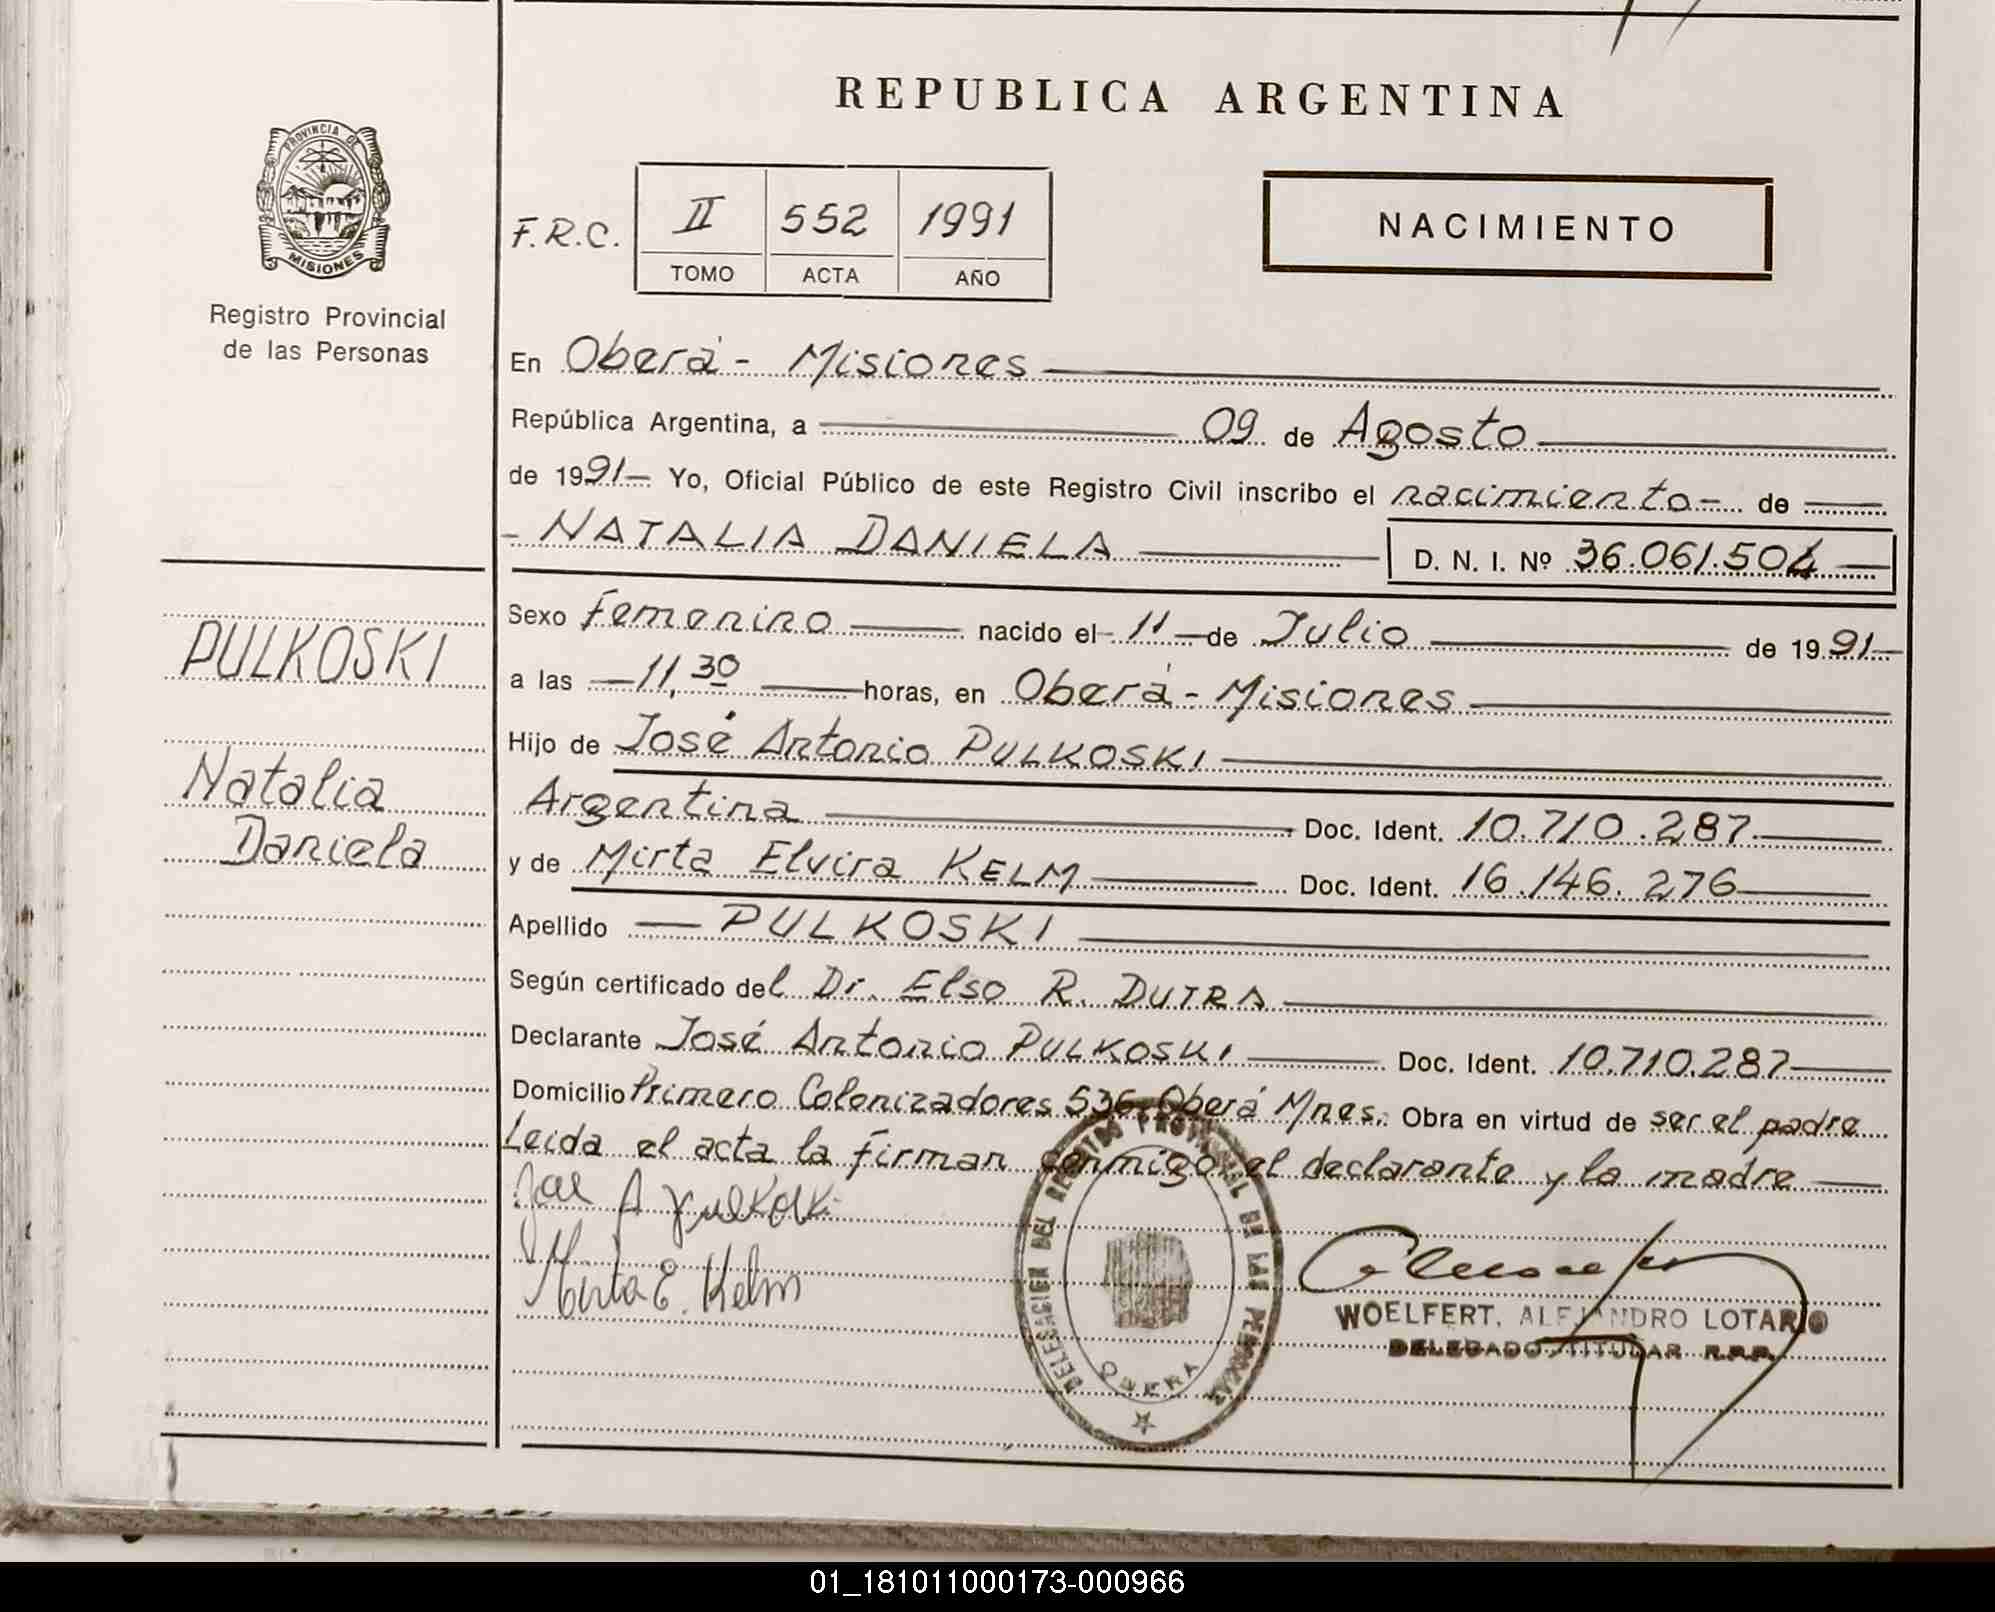 REPUBLICA ARGENTINA
PROVINCIA DE
MISIONES
Registro Provincial
de las Personas
F.R.C.
II 552 1991
TOMO ACTA AÑO
NACIMIENTO
En Oberá - Misiones
República Argentina, a 09 de Agosto
de 1991- Yo, Oficial Público de este Registro Civil inscribo el nacimiento - de
- NATALIA DANIELA D. N. I. Nº 36.061.504
Sexo Femenino nacido el 11 de Julio de 1991
a las 11,30 horas, en Oberá - Misiones
Hijo de José Antonio PULKOSKI
Argentina Doc. Ident. 10.710.287
y de Mirta Elvira KELM Doc. Ident. 16.146.276
Apellido PULKOSKI
Según certificado del Dr. Elso R. DUTRA
Declarante José Antonio PULKOSKI Doc. Ident. 10.710.287
Domicilio Primero Colonizadores 536 Oberá Mnes. Obra en virtud de ser el padre
Leida el acta la firman conmigo el declarante y la madre
PULKOSKI
Natalia
Daniela
Mirta E. Kelm
DELEGACION DEL REGISTRO PROVINCIAL DE LAS PERSONAS
OBERA
WOELFERT, ALEJANDRO LOTARIO
DELEGADO TITULAR R.P.P.
01_181011000173-000966